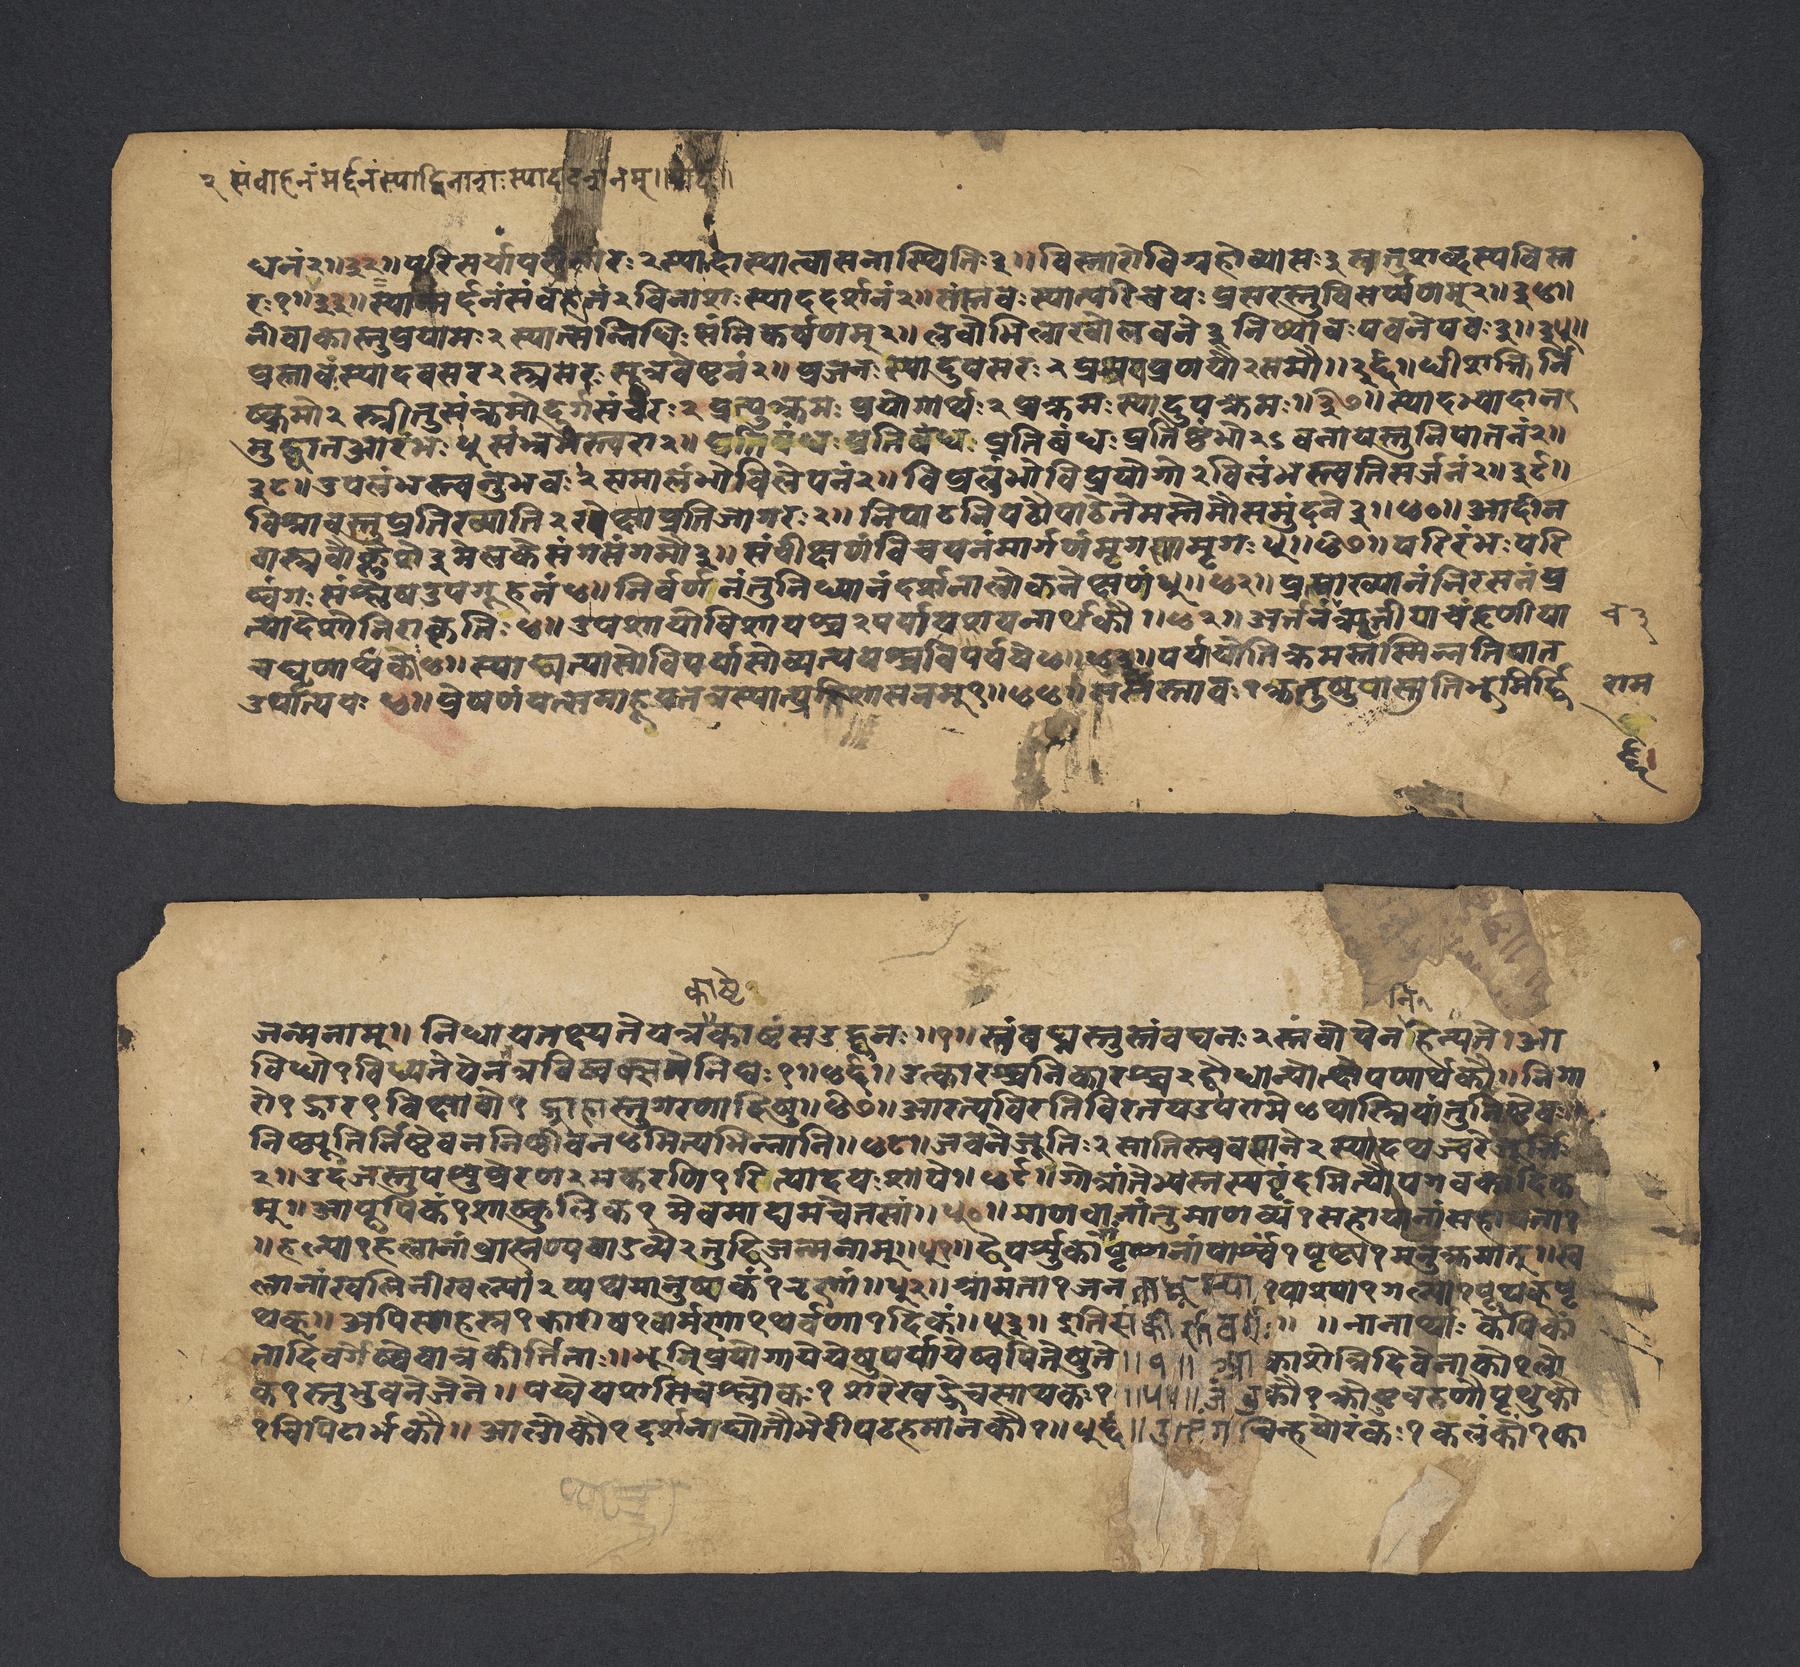 २ संवाहनंमर्द्दनंस्याद्विनाशःस्याददर्शनम्॥
धनं२॥३२॥परिसर्यापरीसारः२स्यादास्यात्वासनास्थितिः३॥विस्तारोविग्रहोव्यासः३सतुशब्दस्यविस्त
रः१॥३३॥स्यान्मर्दनंसंवाहनं२विनाशःस्याददर्शनं२॥संस्तवःस्यात्परिचयःप्रसरस्तुविसर्प्पणम्२॥३४॥
नीवाकास्तुप्रयामः२स्यात्सन्निधिःसंनिकर्षणम्२॥लवोभिलाखोलवने३निष्पावःपवनेपवः३॥३५॥
प्रस्तावंस्यादवसर२स्त्रसरःसूत्रवेष्टनं२॥प्रजनःस्यादुपसरः२प्रश्रयप्रणयौ२समौ॥३६॥धीशक्तिर्नि
ष्क्रमो२स्त्रीतुसंक्रमोदुर्गसंचरः२प्रत्युत्क्रमःप्रयोगार्थः२प्रक्रमःस्यादुपक्रमः॥३७॥स्यादभ्यादान
मुद्घातआरंभः५संभ्रमस्त्वरा२॥प्रतिबंधःप्रतिष्टंभो२ऽवनायस्तुनिपातनं२॥
३८॥उपलंभस्त्वनुभवः२समालंभोविलेपनं२॥विप्रलंभोविप्रयोगो२विलंभस्त्वतिसर्जनं२॥३९॥
विश्रावस्तुप्रतिख्याति२रवेक्षाप्रतिजागरः२॥निपाठनिपठौपाठेतेमस्तेमौसमुंदने३॥४०॥आदीन
वास्त्रवौक्लेशे३मेलकेसंगसंगमौ३॥संवीक्षणंविचयनंमार्गणंमृगणामृगः५॥४१॥परिरंभःपरि
ष्वंगःसंश्लेषउपगूहनं४॥निर्वर्णनंतुनिध्यानंदर्शनालोकनेक्षणं५॥४२॥प्रत्याख्यानंनिरसनंप्र
त्यादेशोनिराकृतिः४॥उपशायोविशायश्च२पर्यायशयनार्थकौ॥४३॥अर्तनंऋतीयाचहृणीया
चघृणार्थके४॥स्याद्व्यत्यासोविपर्यासोव्यत्ययश्चविपर्यये४॥पर्ययोतिक्रमस्तस्मिन्नतिपात
उपात्ययः४॥प्रेषणंयत्समाहूयतत्रस्यात्प्रतिशासनम्१॥४४॥ससंस्तावः१क्रतुषुयास्तुतिभूमिर्द्वि
राम
काष्टे१
नि१
जन्मनाम्॥निधायतक्ष्यतेयत्रकाष्टंसउद्घनः॥१॥स्तंबघ्नस्तुस्तंबघनः२स्तंबोयेनहन्यते॥आ
विधो१विध्यतेयेनतत्रविष्वक्समेनिघः१॥४६॥उत्कारश्चनिकारश्च२द्वौधान्योत्क्षेपणार्थकौ॥निगा
रो१द्गार१विक्षावो१द्ग्राहास्तुगरणादिषु॥४७॥आरत्यवरतिविरतयउपरामे४थास्त्रियांतुनिष्ठेवः॥
निष्ठ्यूतिर्निष्ठेवननिष्ठीवन४मित्यभिन्नानि॥४८॥जवनेजूतिः२सातिस्त्ववसाने२स्यादथज्वरेजूर्त्तिः
२॥उदजस्तुपशुप्रेरण२मकरणि१रित्यादयःशापे॥४९॥गोत्रांतेभ्यस्तस्यवृंदमित्यौपगवकादिक
म्॥आपूपिकं१शाष्कुलिक१मेवमाद्यमचेतसां॥५०॥माणवानांतुमाणव्यं१सहायानांसहायता१
॥हल्या१हलानांब्राह्मण्यवाडव्ये२तुद्विजन्मनाम्॥५१॥द्वेपर्शुकानांपृष्ठानांपार्श्वं१पृष्ठ्य१मनुक्रमात्॥ख
लानांखलिनीखल्या२प्यथमानुष्यकं१नृणां॥५२॥ग्रामता१जनता१पाश्या१गल्या१पृथक्पृ
थक्॥अपिसाहस्र१कारीष१वार्मणा१थर्वणा१दिकं॥५३॥इतिसंकीर्णवर्गः॥॥नानार्थाःकेपिकां
तादिवर्गेष्वेवात्रकीर्त्तिताः॥भूरिप्रयोगायेयेषुपर्यायेष्वपितेषुते॥१॥आकाशेत्रिदिवेनाको१लो
क१स्तुभुवनेजने॥पद्येयशसिचश्लोकः१शरेखड्गेचसायकः१॥५५॥जंबुकौ१क्रोष्टुवरुणौपृथुकौ
१चिपिटार्भकौ॥आलोकौ१दर्शनोद्योतौभेरीपटहमानकौ१॥५६॥उत्संगचिन्हयोरंकः१कलंकां१का